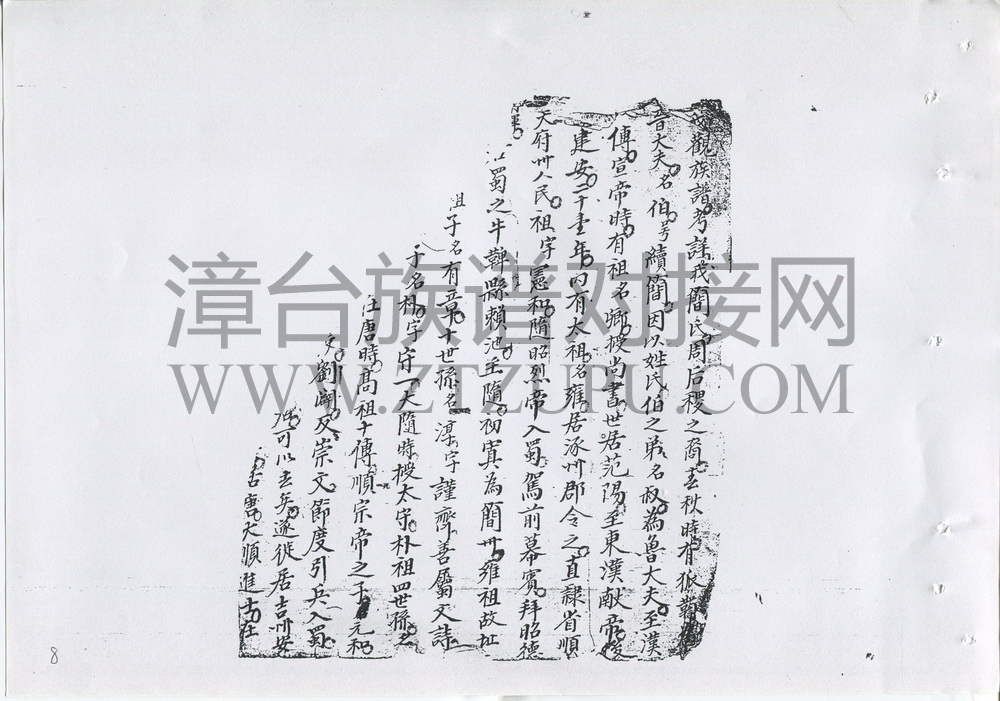 觀族譜考詳我簡氏周后稷之裔春秋時有狐
晉大夫名伯号續簡因以姓氏伯之弟名叔為魯大夫至漢
傳宣帝時有祖名卿授尚書世居范陽至東漢献帝
建安二十年内有太祖名雍居涿卅郡今之直隸省順
天府卅人民祖字憲和隨昭烈帝入蜀駕前幕賓拜昭德
蜀之牛鞞縣賴池至隋初寘為簡卅雍祖故址
祖子名有章十世孫名淳字謹齋善屬文詩
子名朴字守一大隨時授太守朴祖四世孫
唐時高祖十傳順宗帝之子元和
劉闢反崇文節度引兵入蜀
可以去矣遂徙居吉卅安
唐大順進士任
8
漳台族谱对接网
WWW.ZTZUPU.COM